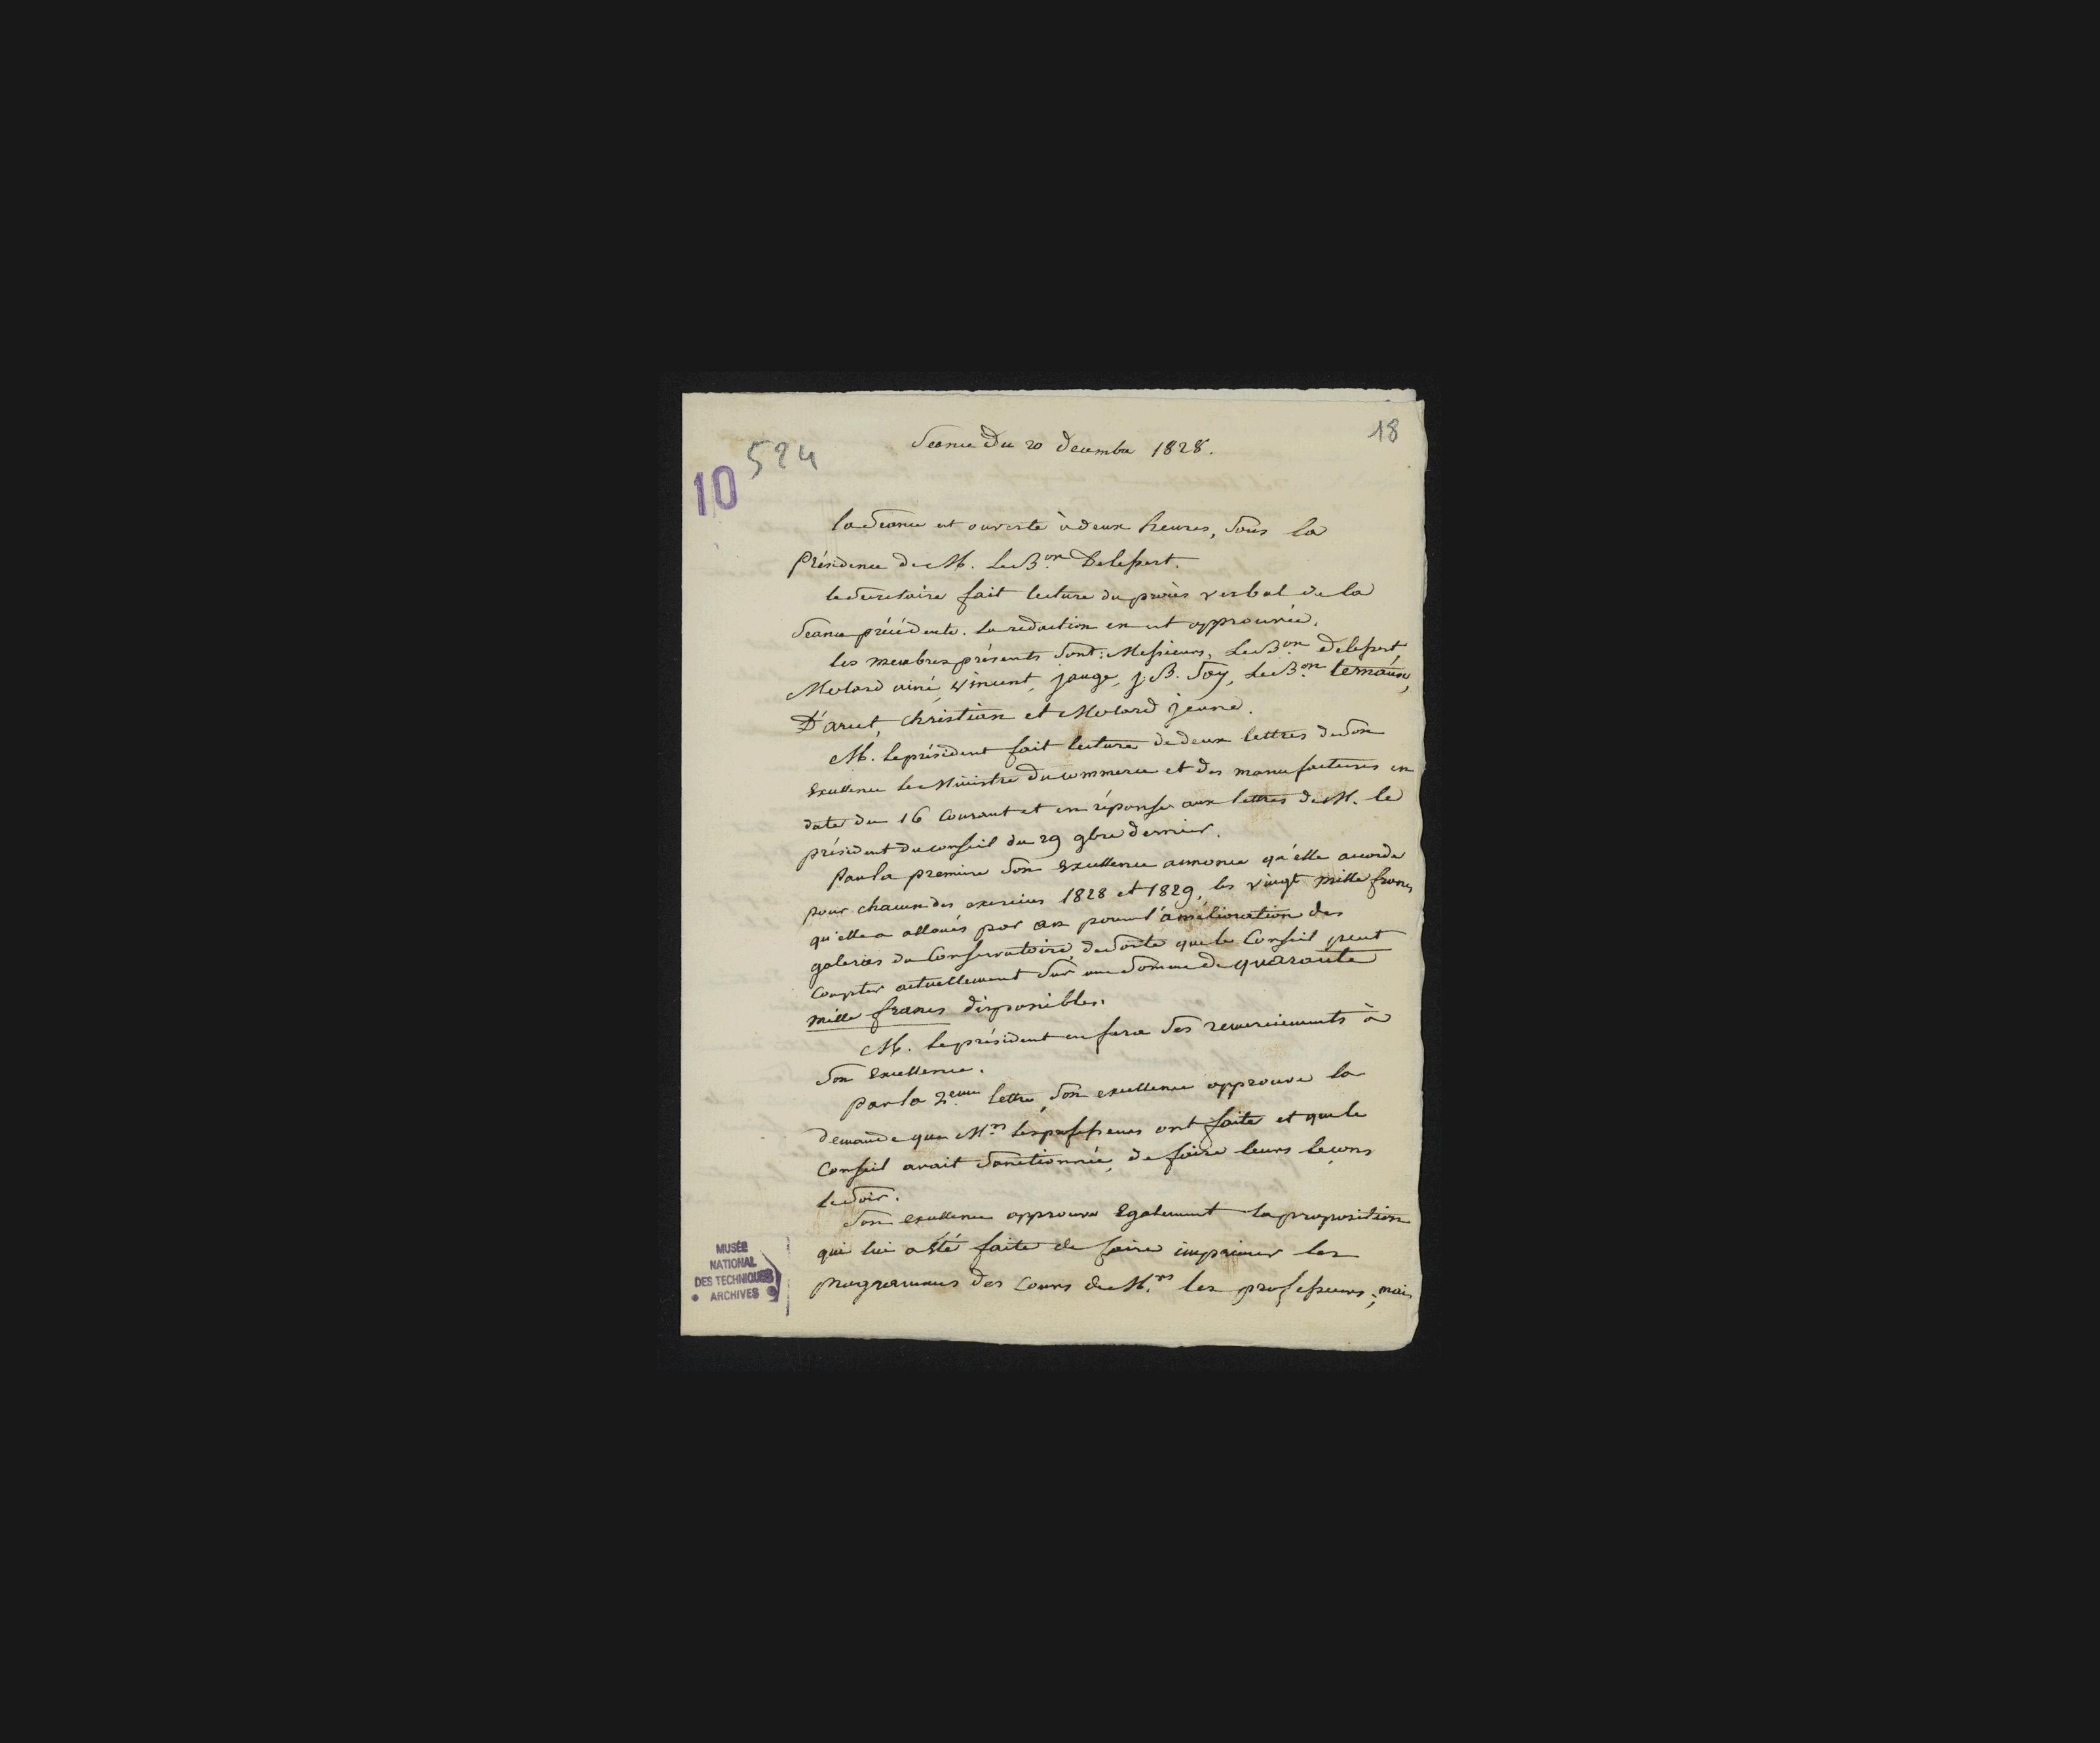 18
524
10
Seance du 20 decembre 1828.
la Seance est ouverte à deux heures, Sous la
Présidence de M. Le B.on Delessert.
le Secretaire fait lecture du procès verbal de la
Seance précédente. La redaction en est approuvée.
les membres présents Sont: Messieurs, Le B.on Delessert,
Molard ainé, Vincent, jauge, J. B. Say, Le B.on ternaux,
D'arcet, Christian et Molard jeune.
M. Le président fait lecture de deux lettres de Son
Excellence Le Ministre du commerce et des manufactures en
date du 16 Courant et en réponse aux lettres de M. le
président du conseil du 29 9bre dernier.
Par la premiere Son Excellence annonce qu'elle accorde
pour chacun des exercices 1828 et 1829, les vingt mille francs
qu'elle a alloués par an pour l'amélioration des
galeries du Conservatoire, de Sorte que le Conseil peut
Compter actuellement Sur une Somme de quarante
mille francs disponibles.
M. Le président en fera Ses remerciements à
Son Excellence.
Par la 2.eme lettre, Son excellence approuve la
demande que M.rs Les professeurs ont faite et que le
Conseil avait Sanctionnée, de faire leurs leçons
le Soir.
Son excellence approuve Egalement la proposition
qui lui a Eté faite de faire imprimer les
programmes des Cours de M.rs les professeurs; mais
MUSÉE
NATIONAL
DES TECHNIQUES
ARCHIVES